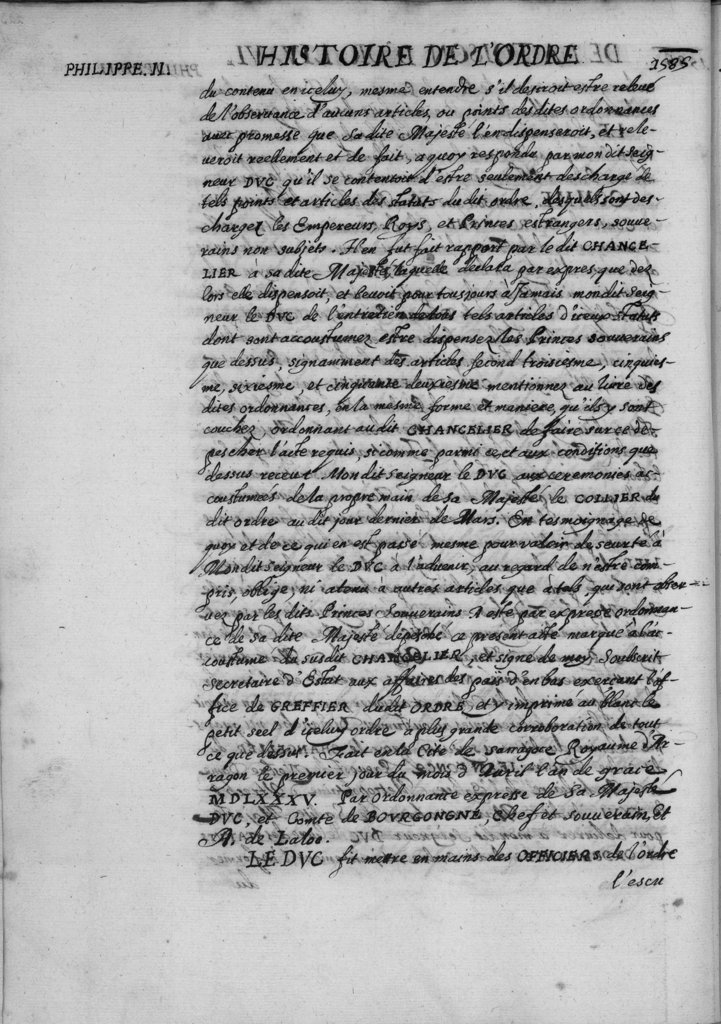 HISTOIRE DE L'ORDRE
PHILIPPE.II.
1585
du contenu en iceluy, mesme entendre s'il desiroit estre relevé
de l'observance d'aucuns articles, ou points desdites ordonnances
avec promesse que sa dite Majesté l'en dispenseroit, et rele-
veroit reellement et de fait, a quoy respondu par mondit seig-
neur DVC qu'il se contentoit d'estre seulement deschargé de
tels points et articles des statuts du dit ordre, desquels sont des-
chargez les Empereurs, Roys, et Princes estrangers, souve-
rains non subjets. Il en fut fait rapport par le dit CHANCE-
LIER à sa dite Majesté, laquelle declara par expres, que dez
lors elle dispensoit, et levoit pour tousjours à jamais mondit seig-
neur le DVC de l'entretien de tous tels articles d'iceux statuts
dont sont accoustumez estre dispensez les Princes souverains
que dessus, signamment des articles second troisiesme, cinquies-
me, sixiesme, et cinquante deuxiesme mentionnez au livre des
dites ordonnances, en la mesme forme et maniere, qu'ils y sont
couchez, ordonnant au dit CHANCELIER de faire sur ce de-
pescher l'acte requis, si comme parmi ce, et aux conditions que
dessus receut Mondit seigneur le DVC aux ceremonies ac-
coustumees de la propre main de sa Majesté le COLLIER du
dit ordre au dit jour dernier de Mars. En tesmoignage de
quoy et de ce qui en est passé mesme pour valoir de seurté à
Mondit seigneur le DVC à l'advenir, au regard de n'estre com-
pris, obligé, ni atenu à autres articles que à tels, qui sont obser-
vez par les dits Princes Souverains A esté par expresse ordonnan-
ce de sa dite Majesté depesché ce present acte marqué à l'ac-
coustumé du susdit CHANCELIER, et signé de moy Soubscrit
Secretaire d'Estat aux affaires des pais d'enbas exerçant l'of-
fice de GREFFIER dudit ORDRE, et y imprimé au blanc le
petit seel d'iceluy ordre à plus grande corroboration de tout
ce que dessus. Fait en la Cité de sarragoce Royaume d'Ar-
ragon le premier jour du mois d'Avril l'an de grace
MDLXXXV. Par Ordonnante expresse de Sa Majesté
DVC, et Comte de BOURGONGNE, Chef et souverain, et
A. de Laloo.
LE DVC fit mettre en mains des OFFICIERS de l'ordre
l'escu